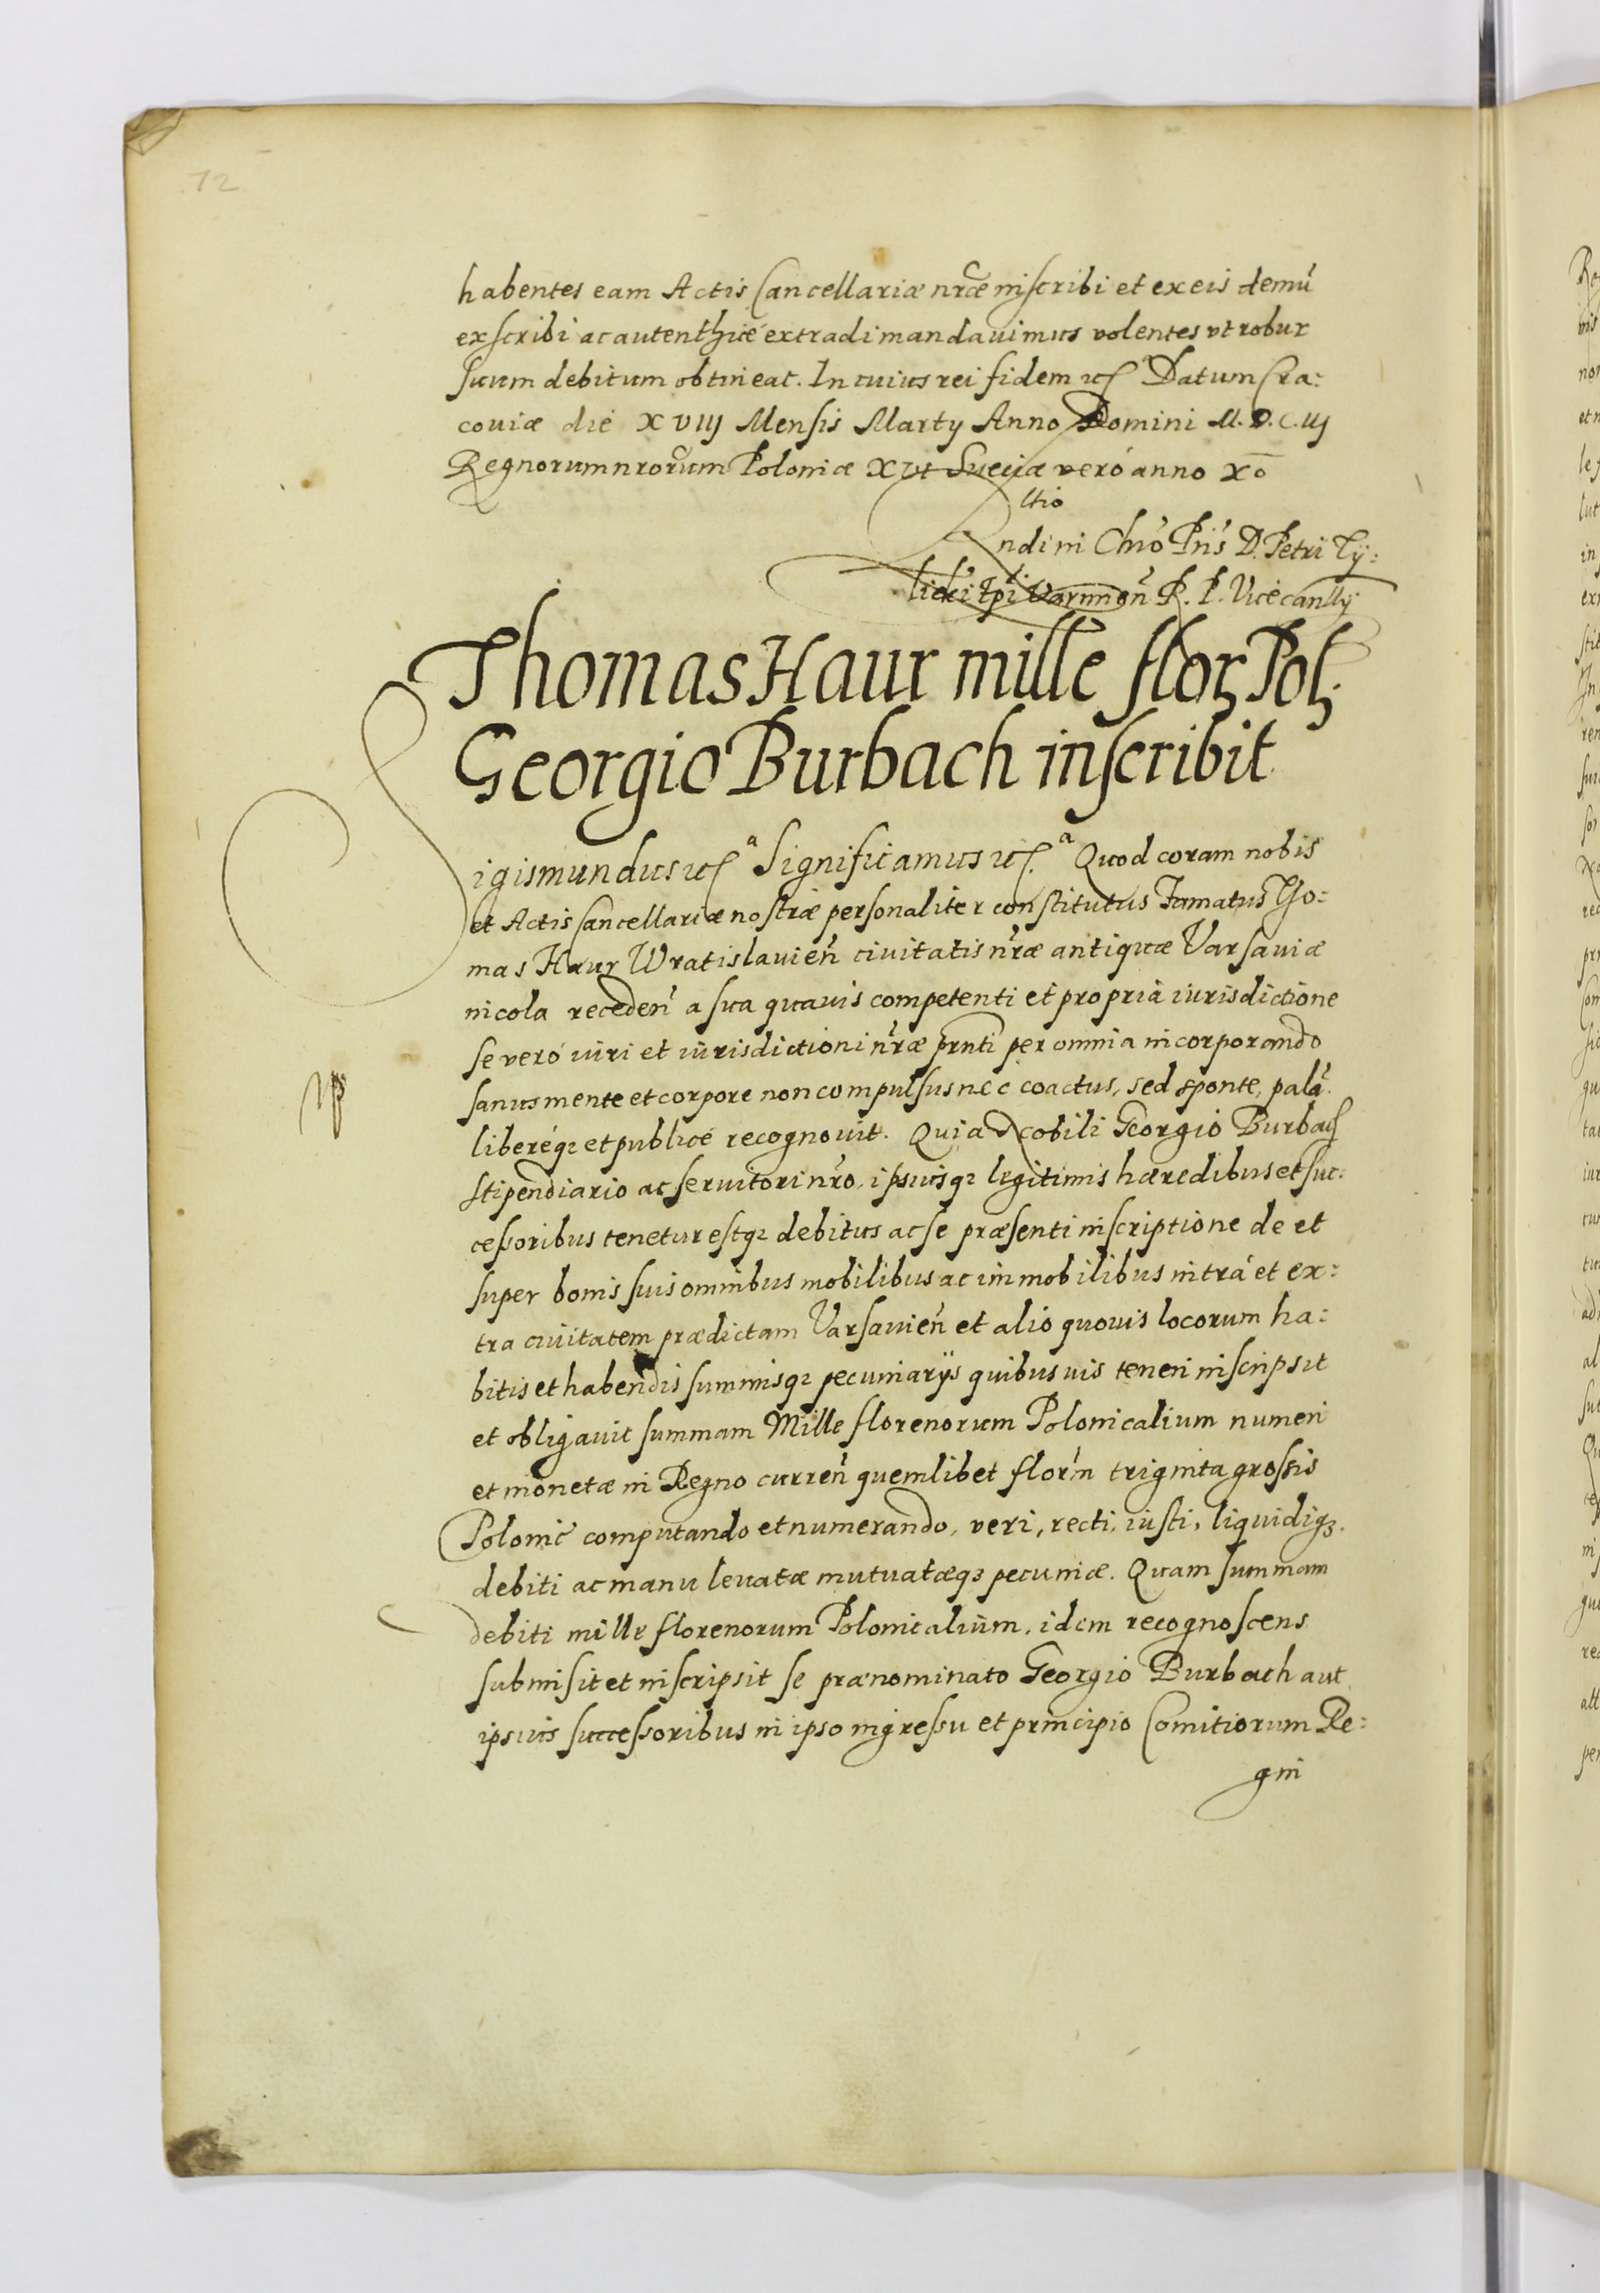 72
habentes eam Actis Cancellariæ nræ inscribi et ex eis demū
exscribi ac autenthicé extradi mandavimus volentes vt robur
suum debitum obtineat. In cuius rei fidem etc. Datum Cra:
coviæ die XVIIJ Mensis Martij Anno Domini M.D.C.IIJ
Regnorum nrorum Poloniæ XVI Sueciæ veró anno Xō
Rndini Chro Pris D. Petri Ty:
licki Epi Varmien R. P. Vicecanllij
Thomas Haur mille flor Pol
Georgio Burbach inscribit
Sigismundus etc.ᵃ Significamus etc.ᵃ Quod coram nobis
et Actis Cancellariæ nostræ personaliter constitutus Famatus Tho:
mas Haur Wratislavien civitatis nræ antiquæ Varsaviæ
incola receden a sua quavis competenti et propria iurisdictione
se veró iuri et iurisdictioni nræ prnti per omnia incorporando
sanus mente et corpore non compulsus nec coactus, sed sponte, palā
liberéq; et publicé recognovit. Quia Nobili Georgio Burbach
stipendiario ac servitori nro, ipsiusq; legitimis hæredibus et suc:
cessoribus tenetur estq; debitus ac se præsenti inscriptione de et
super bonis suis omnibus mobilibus ac immobilibus intrá et ex:
tra civitatem prædictam Varsavien et alio quovis locorum ha:
bitis et habendis summisq; pecuniarijs quibusvis teneri inscripsit
et obligavit summam Mille florenorum Polonicalium numeri
et monetæ in Regno curren quemlibet florm triginta grossis
Polonic computando et numerando, veri, recti, iusti, liquidiq;
debiti ac manu levatæ mutuatæq; pecuniæ. Quam summam
debiti mille florenorum Polonicalium, idem recognoscens
submisit et inscripsit se prænominato Georgio Burbach aut
ipsius successoribus in ipso ingressu et principio Comitiorum Re:
gni